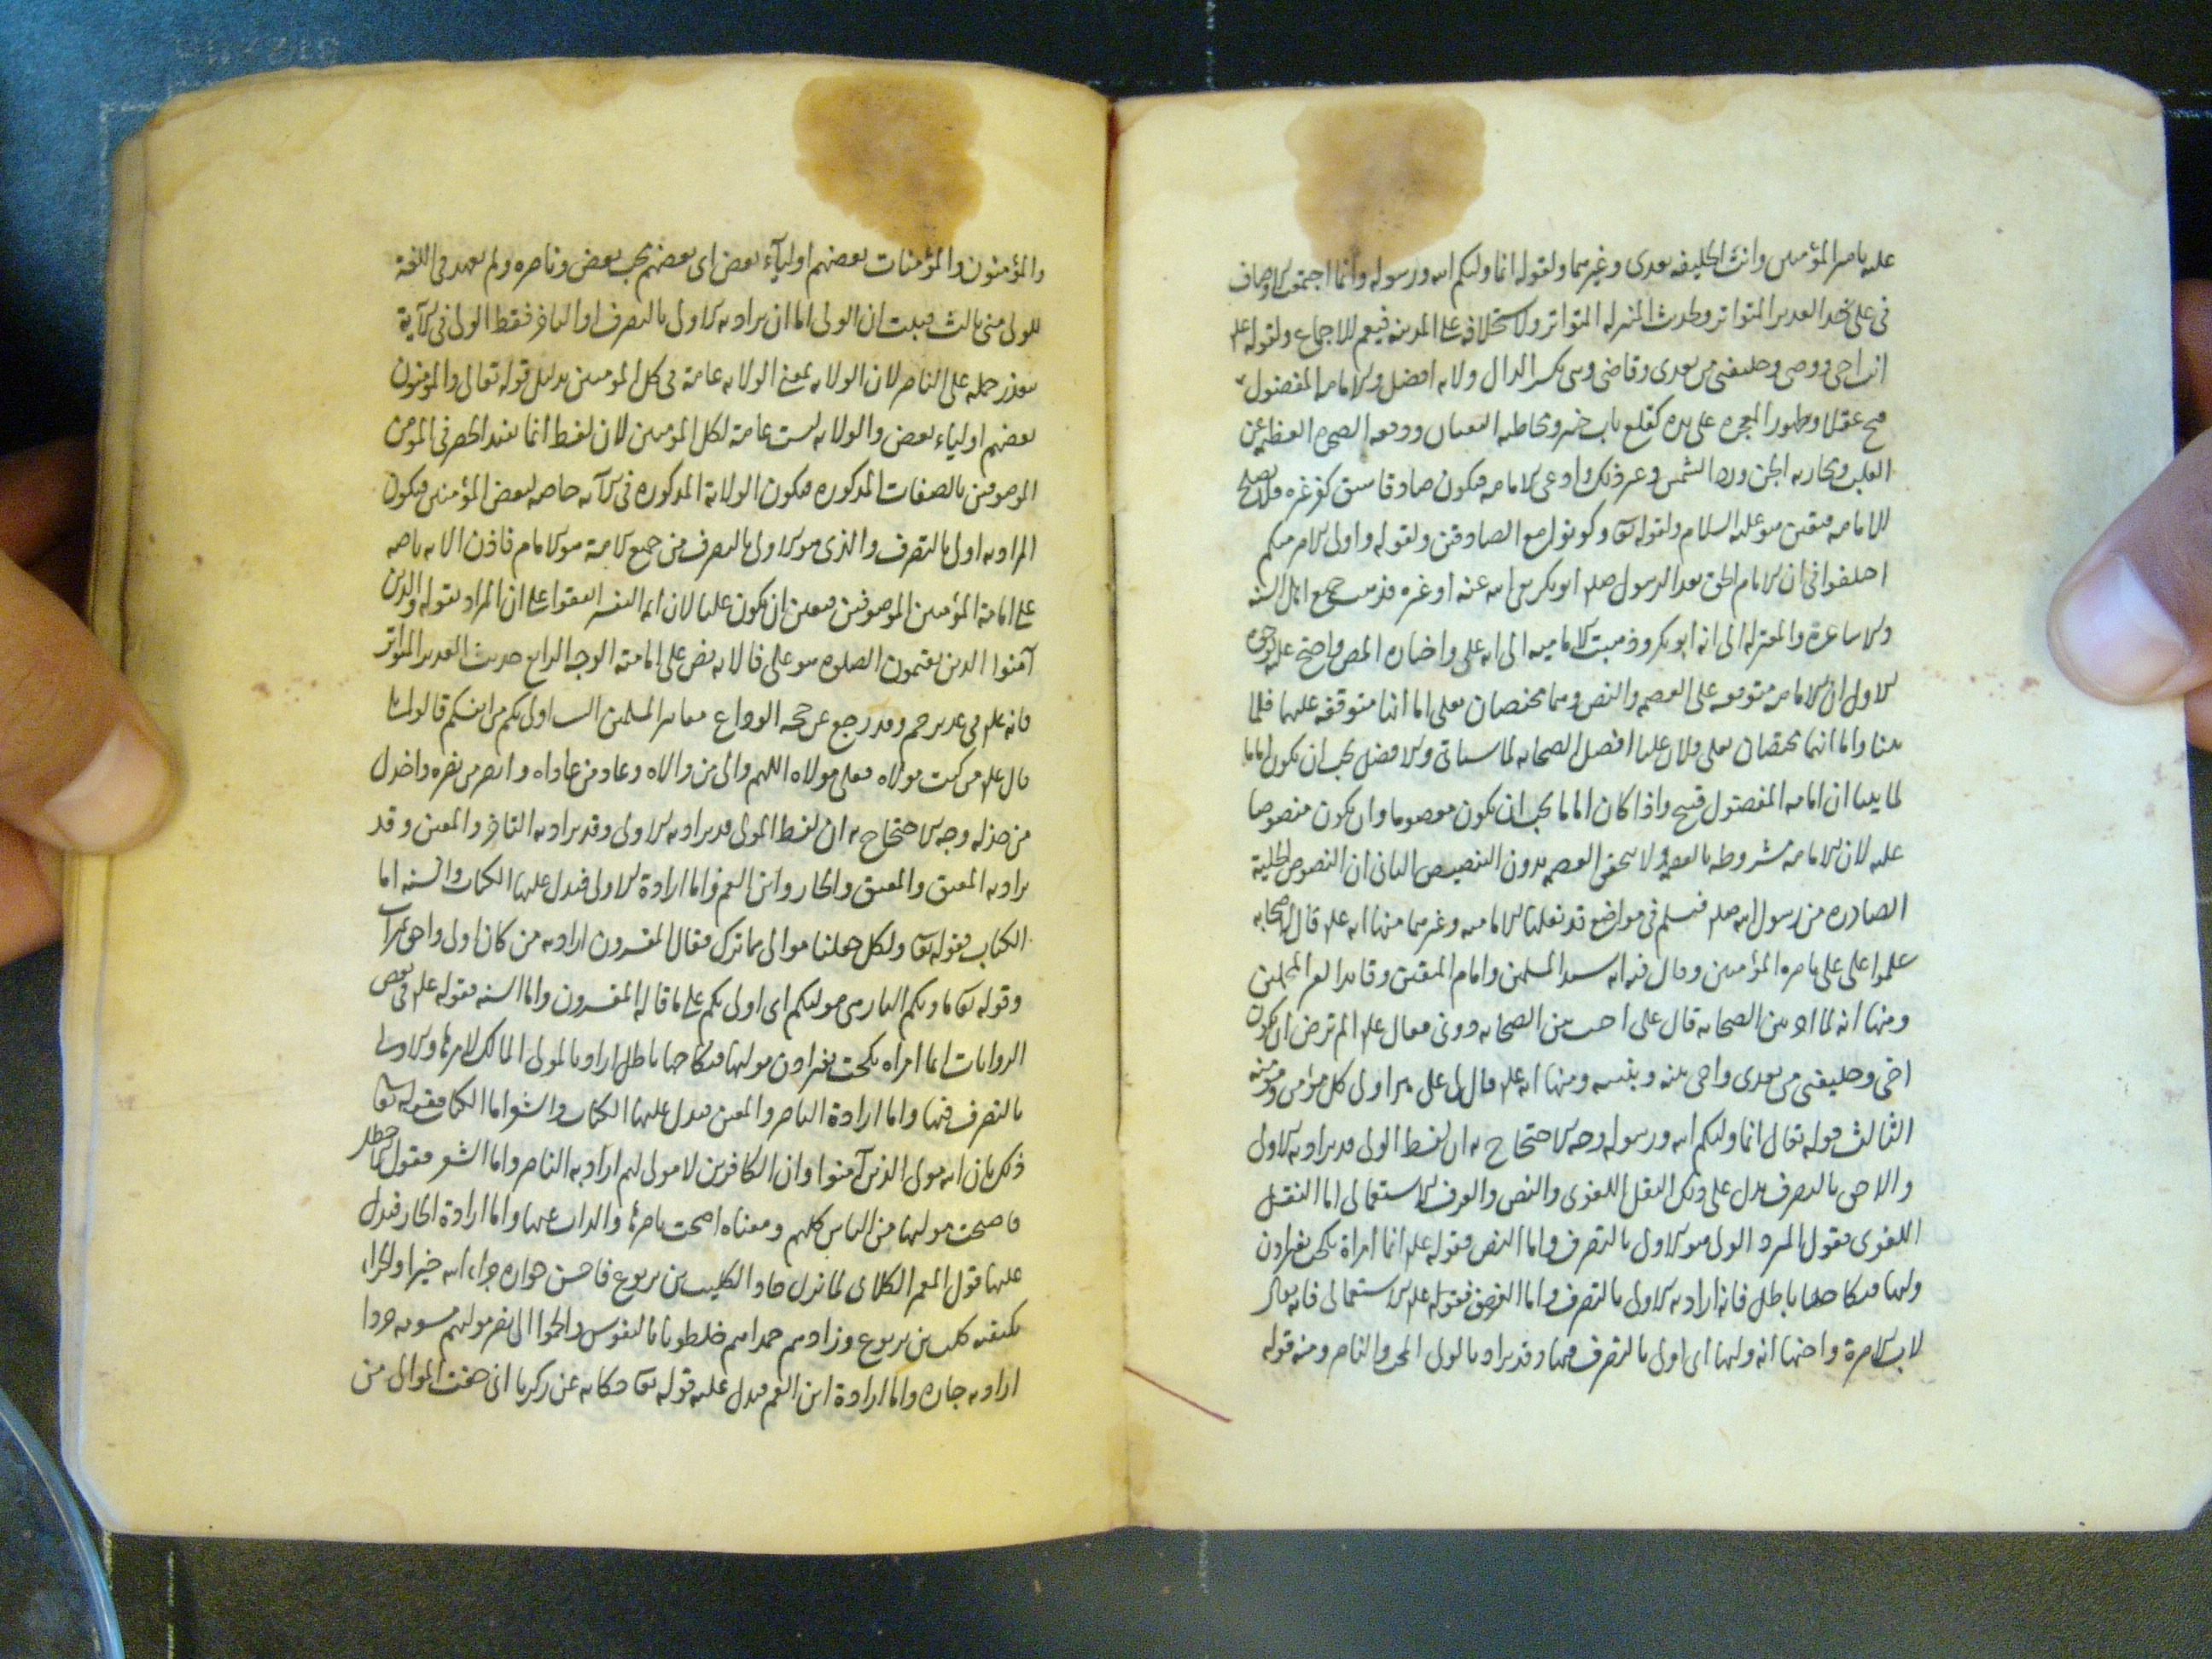 عليه بامرة المؤمنين وانت الخليفة بعدي وغيرهما ولقوله انما وليكم الله ورسوله وانما اجتمعت الاوصاف
في علي ع لحديث الغدير المتواتر ولحديث المنزلة المتواتر ولاستخلافه على المدينة فيعم للاجماع ولقوله علم
انت اخي ووصيي وخليفتي من بعدي وقاضي ديني بكسر الدال ولانه افضل وامامة المفضول
قبيح عقلا ولظهور المعجزة على يده كقلع باب خيبر ومخاطبة الثعبان ورفعه الصخرة العظيمة عن
القليب ومحاربة الجن ورد الشمس وغير ذلك وادعى الامامة فيكون صادقا سبق كفر غيره فلا يصلح
للامامة فتعين هو عليه السلام ولقوله تعا وكونوا مع الصادقين ولقوله واولي الامر منكم
اختلفوا في ان الامام الحق بعد الرسول صلم ابو بكر رضي الله عنه او غيره فذهب جميع اهل السنة
والاشاعرة والمعتزلة الى انه ابو بكر وذهبت الامامية الى انه علي واختاره المص واحتج عليه بوجوه
الاول ان الامامة متوقفة على العصمة والنص وهما مختصان بعلي اما انها متوقفة عليهما فلما
بينا واما انهما مختصان بعلي فلان عليا افضل الصحابة لما سياتي والافضل يجب ان يكون اماما
لما بينا ان امامة المفضول قبيح واذا كان اماما يجب ان يكون معصوما وان يكون منصوصا
عليه لان الامامة مشروطة بالعصمة ولا تحقق العصمة بدون التنصيص الثاني ان النصوص الجلية
الصادرة من رسول الله صلم في مواضع قد نقلها الامامية وغيرهم منها انه علم قال لاصحابه
سلموا على علي بامرة المؤمنين وقال فيه انه سيد المسلمين وامام المتقين وقائد الغر المحجلين
ومنها انه لما اخى بين الصحابة قال علي اخيت بين الصحابة دوني فقال علم الم ترض ان تكون
اخي وخليفتي من بعدي واخى بينه وبنفسه ومنها انه علم قال ان علي ولي كل مؤمن ومؤمنة
الثالث قوله تعالى انما وليكم الله ورسوله وجه الاحتجاج به ان لفظ الولي قد يراد به الاولى
والاحق بالتصرف يدل على ذلك النقل اللغوي والنص والعرف الاستعمالي اما النقل
اللغوي فقول المبرد الولي هو الاولى بالتصرف واما النص فقوله علم ايما امراة نكحت بغير اذن
وليها فنكاحها باطل فانه اراد به الاولى بالتصرف واما العرف الاستعمالي فانه يقال
لاب المراة واخيها انه وليها اي اولى بالتصرف فيها وقد يراد بالولي المحب والناصر ومنه قوله
والمؤمنون والمؤمنات بعضهم اوليآء بعض اى بعضهم محب بعض وناصره ولم يعهد في اللغة
للولي معنى ثالث فثبت ان الولي اما ان يراد به الاولى بالتصرف او الناصر فقط الولي في الآية
تعذر حمله على الناصر لان الولاية بمعنى الولاية عامة في كل المؤمنين بدليل قوله تعالى والمؤمنون
بعضهم اولياء بعض والولاية ليست عامة لكل المؤمنين لان لفظ انما يفيد الحصر في المؤمن
الموصوفين بالصفات المذكورة فيكون الولاية المذكورة في الآية خاصة لبعض المؤمنين فيكون
المراد به اولى بالتصرف والذي هو الاولى بالتصرف من جميع الامة هو الامام فاذن الآية ناصة
على امامة المؤمنين الموصوفين فتعين ان يكون عليا لان ائمة التفسير اتفقوا على ان المراد بقوله والذين
آمنوا الذين يقيمون الصلوة هو علي فالآية نص على امامته الوجه الرابع حديث الغدير المتواتر
فانه علم في غدير خم وقد رجع عن حجة الوداع معاشر المسلمين الست اولى بكم من انفسكم قالوا بلى
قال علم من كنت مولاه فعلي مولاه اللهم والي من والاه وعاد من عاداه وانصر من نصره واخذل
من خذله وجه الاحتجاج به ان لفظ المولى قد يراد به الاولى وقد يراد به الناصر والمعين وقد
يراد به المعتق والمعتق والجار وابن العم واما ارادة الاولى فيدل عليها الكتاب والسنة اما
الكتاب فقوله تعا ولكل جعلنا موالي مما ترك فقال المفسرون اراد به من كان اولى واحق
وقوله تعا ماويكم النار هي موليكم اى اولى بكم على ما قاله المفسرون واما السنة فقوله علم في بعض
الروايات ايما امراة نكحت بغير اذن موليها فنكاحها باطل اراد بالمولى المالك لامرها والاولى
بالتصرف فيها واما ارادة الناصر والمعين فيدل عليها الكتاب والشعر اما الكتاب فقوله تعا
ذلك بان الله مولى الذين آمنوا وان الكافرين لا مولى لهم اراد به الناصر واما الشعر فقول الاخطل
فاصبحت موليها من الناس كلهم ومعناه اصبحت ناصرها والذاب عنها واما ارادة الجار فيدل
عليها قول المعمر الكلابي لما نزل جاوز الكليب بن يربوع فاحسن جواره جزاء الله خيرا والجزاء
بكفه كليب بن يربوع وزادهم حمدا هم خلطونا بالنفوس والجموا الى نصر موليهم مسومة جردا
اراد به جاره واما ارادة ابن العم فيدل عليه قوله تعا حكاية عن زكريا اني خفت الموالي من